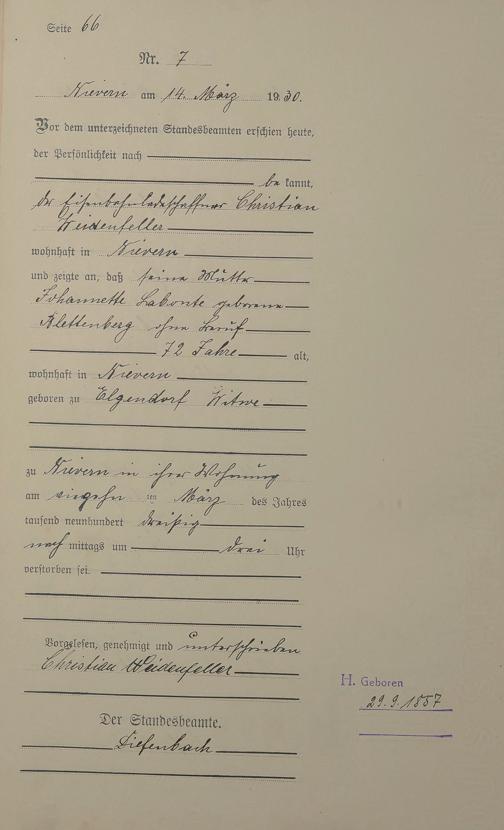 Seite 66
Nr. 7
Nievern am 14. März 1930.
Vor dem unterzeichneten Standesbeamten erschien heute,
der Persönlichkeit nach
be kannt,
der Eisenbahnladeschaffner Christian
Weidenfeller
wohnhaft in Nievern
und zeigte an, daß seine Mutter
Johannette Labonte geborene
Klettenberg ohne Beruf
72 Jahre alt,
wohnhaft in Nievern
geboren zu Elgendorf Witwe
zu Nievern in ihrer Wohnung
am ten März des Jahres
tausend neunhundert dreißig
nach mittags um drei Uhr
verstorben sei.
Vorgelesen, genehmigt und unterschrieben
Christian Weidenfeller
Der Standesbeamte.
Diefenbach
H. Geboren
29.9.1857